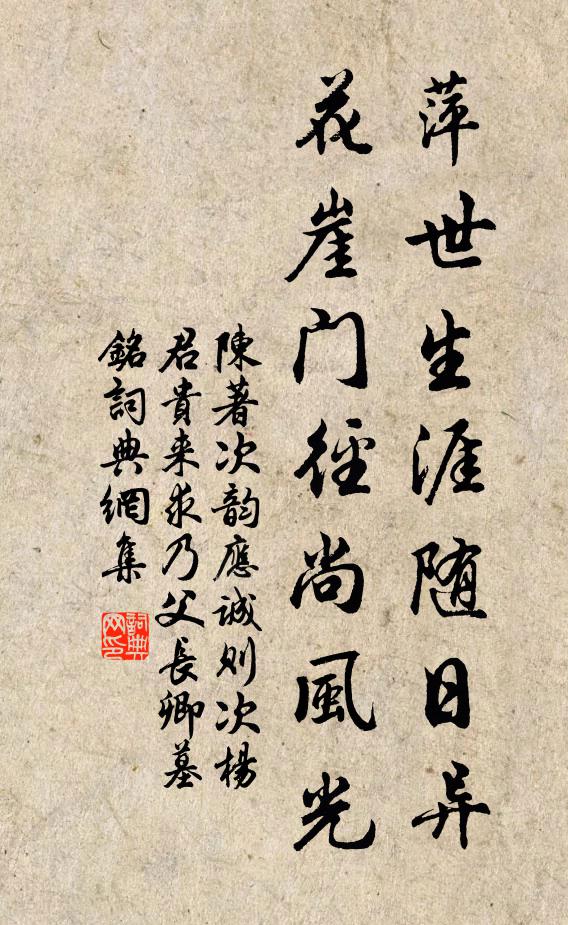 萍世生涯随日异
花崖门徑尚風光
陳著次韵應誠則次楊
君貴来求乃父長卿墓
銘詞典網集
詞典网印